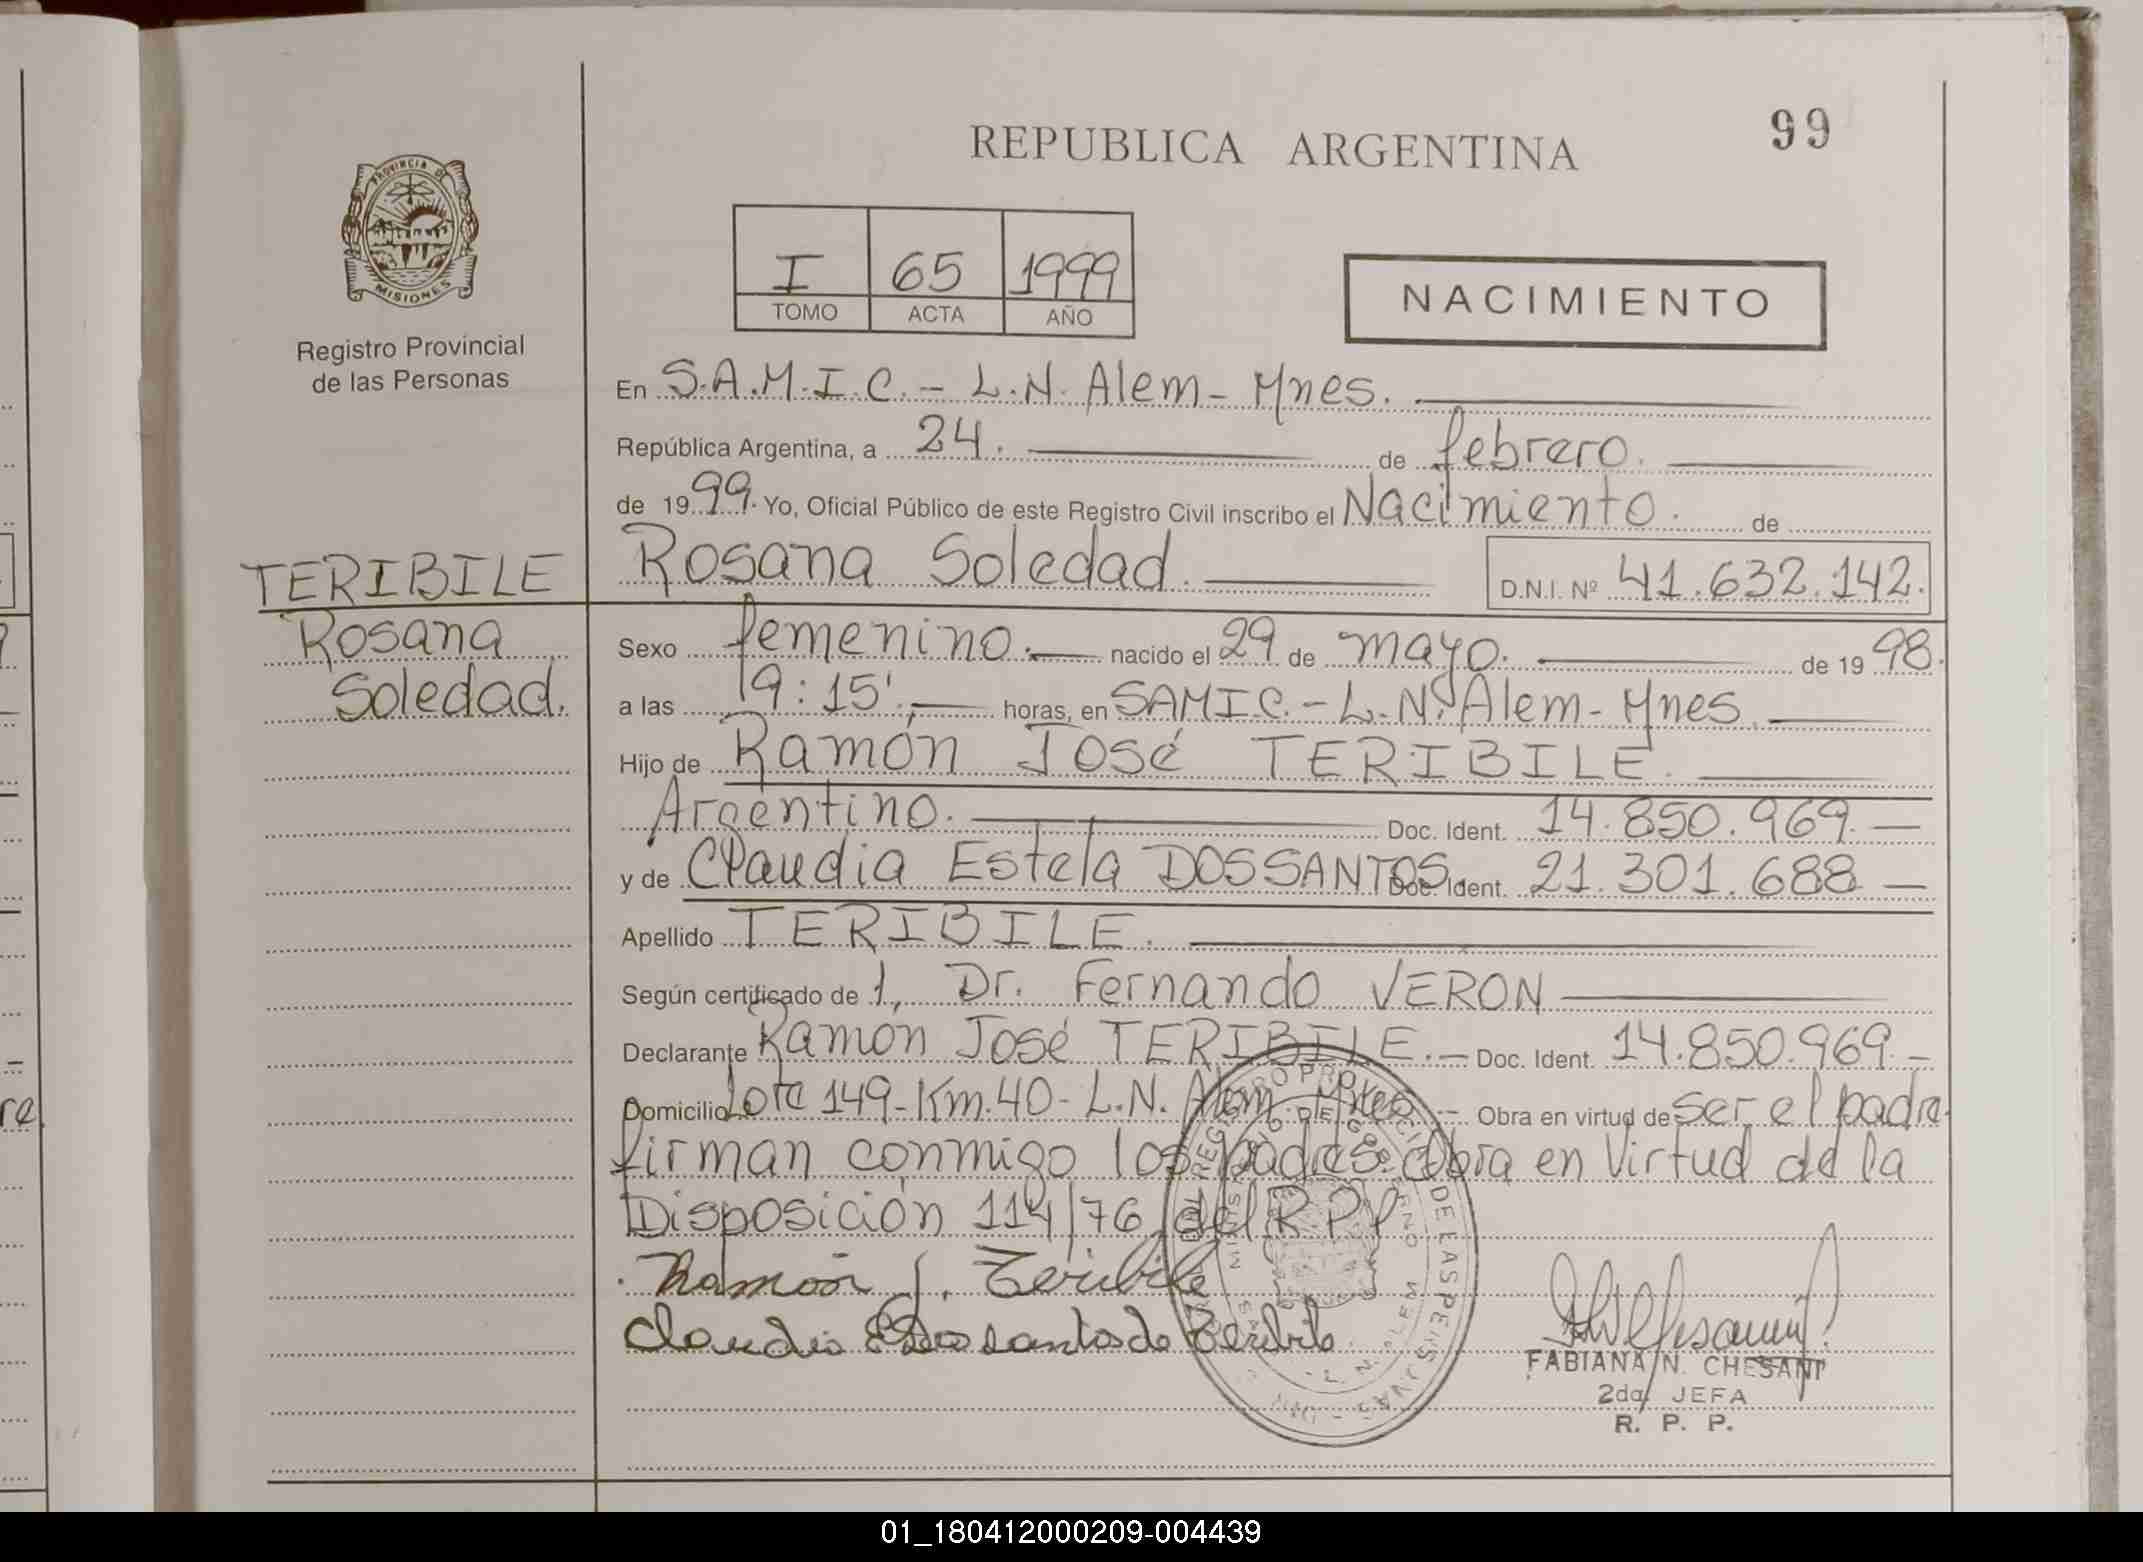 REPUBLICA ARGENTINA
99
PROVINCIA DE
MISIONES
Registro Provincial
de las Personas
I 65 1999
TOMO ACTA AÑO
NACIMIENTO
En S.A.M.I.C. - L.N. Alem - Mnes.
República Argentina, a 24. de febrero.
de 1999. Yo, Oficial Público de este Registro Civil inscribo el Nacimiento. de
TERIBILE
Rosana
Soledad.
Rosana Soledad. D.N.I. Nº 41.632.142.
Sexo femenino. nacido el 29 de mayo. de 1998.
a las 19:15'. horas, en SAMIC. - L.N. Alem - Mnes.
Hijo de Ramón José TERIBILE.
Argentino. Doc. Ident. 14.850.969. —
y de Claudia Estela DOSSANTOS. Doc. Ident. 21.301.688 —
Apellido TERIBILE.
Según certificado de 1, Dr. Fernando VERON
Declarante Ramón José TERIBILE. — Doc. Ident. 14.850.969. —
Domicilio Lote 149 - Km. 40 - L.N. Alem - Mnes. - Obra en virtud de ser el padre.
firman conmigo los padres. Obra en Virtud de la
Disposición 114/76 del R.P.P
Ramón J. Teribile
Claudia E Dos santos de Teribile
REGISTRO PROVINCIAL DE LAS PERSONAS
MINISTERIO DE GOBIERNO
L. N. ALEM
FABIANA N. CHESANI
2da JEFA
R. P. P.
re
01_180412000209-004439